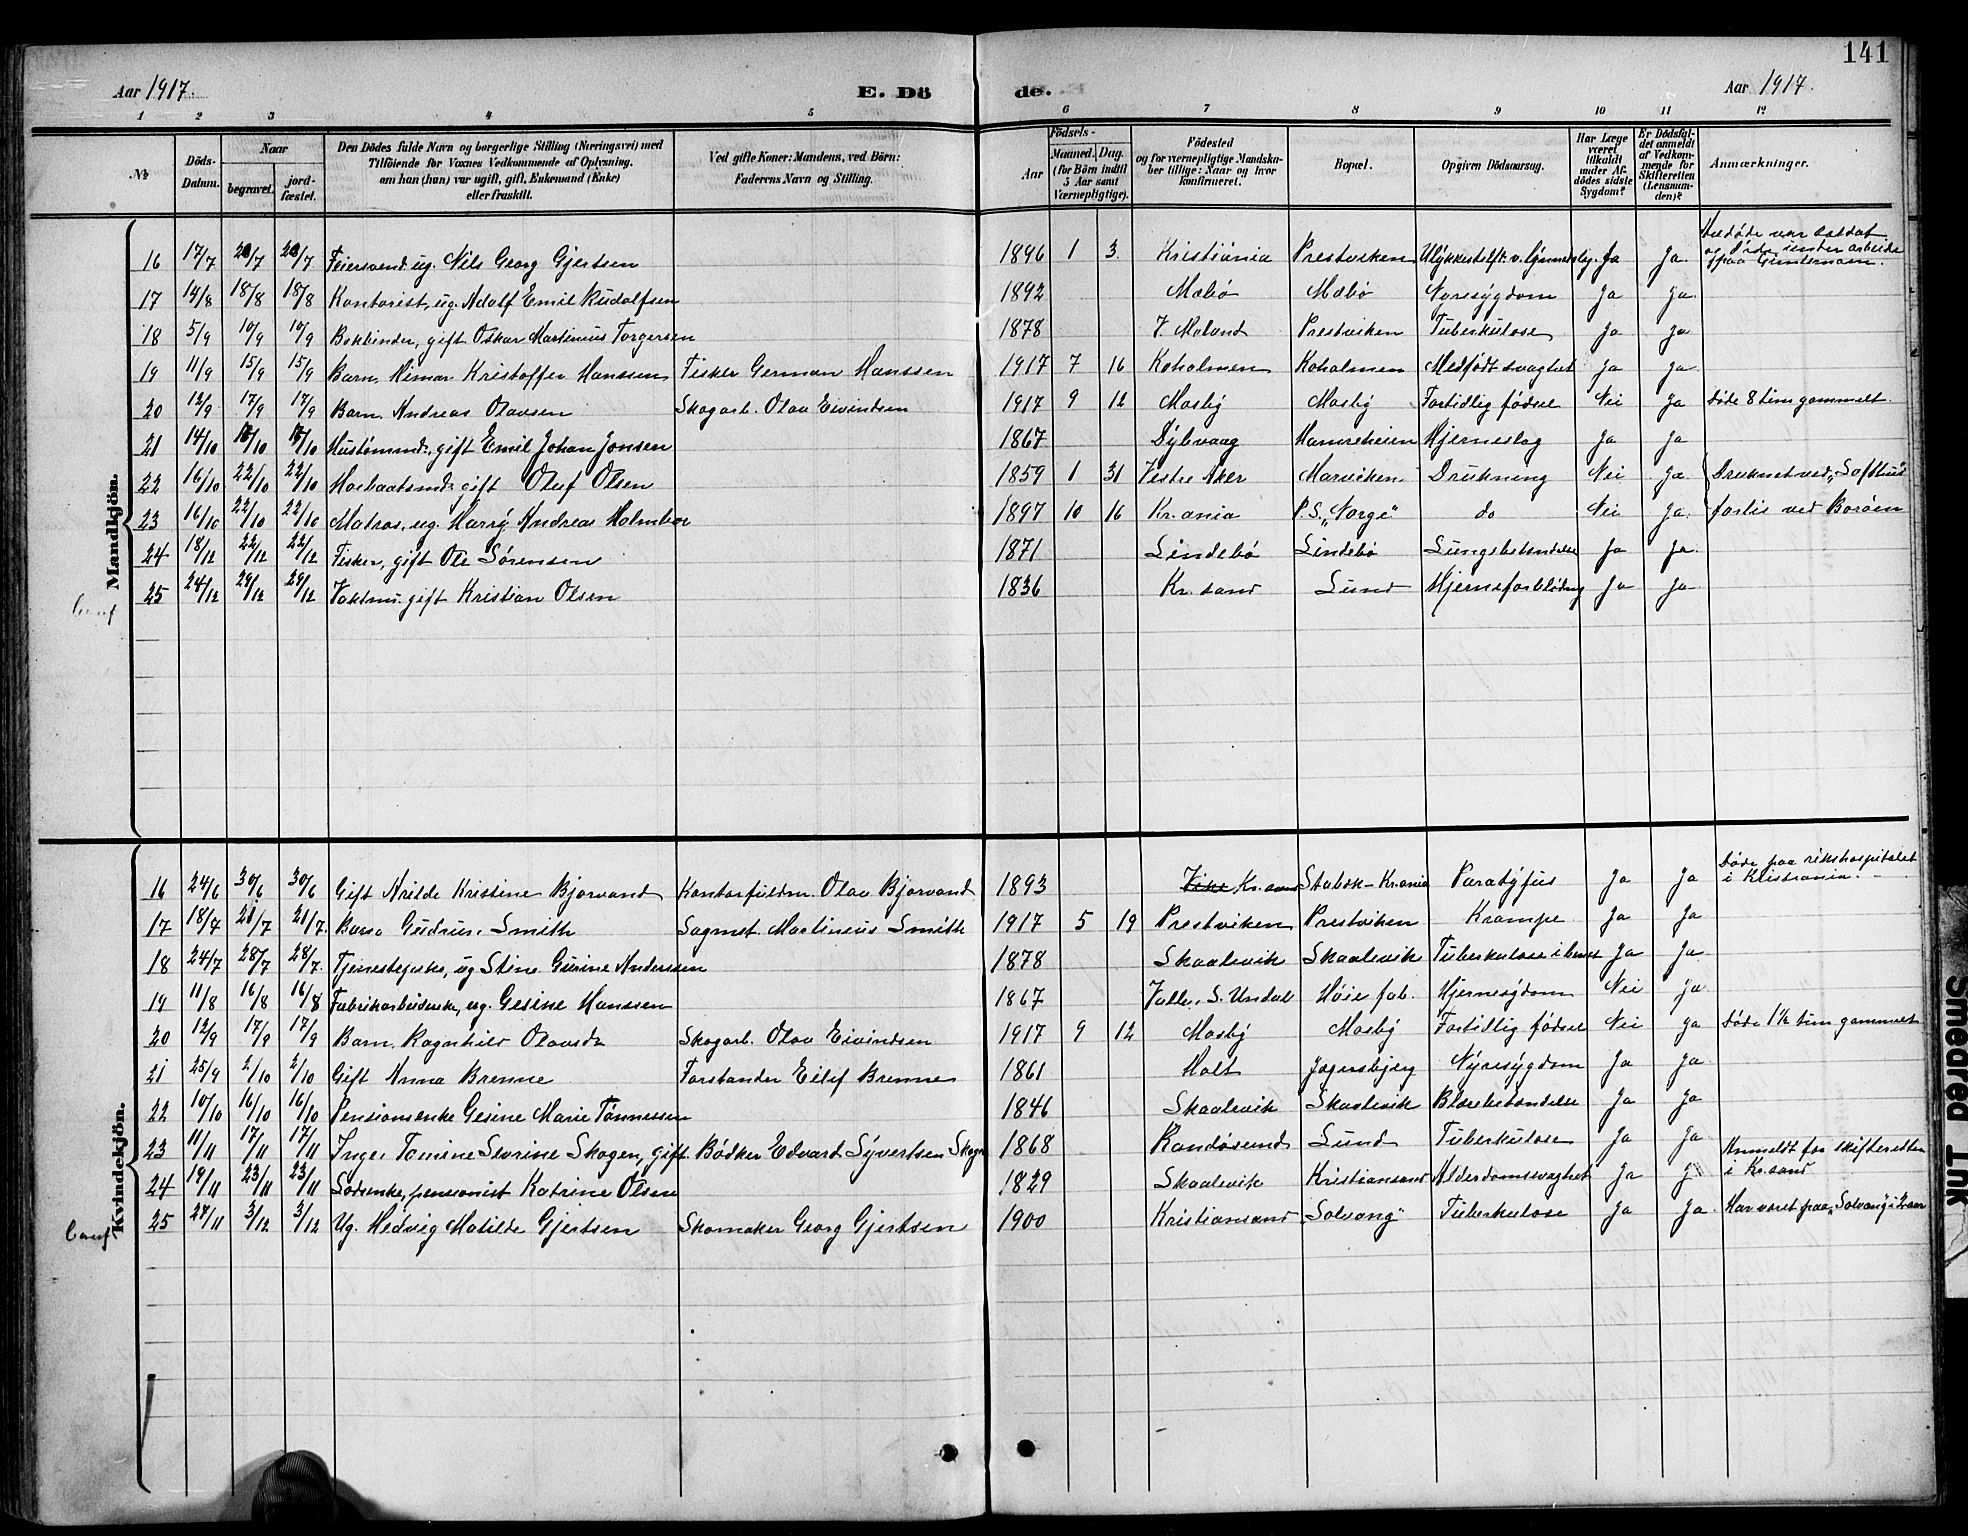 141
Aar 1917. E. Dö de. Aar 1917.
1 2 3 4 5 6 7 8 9 10 11 12
№
Döds-Datum.
Naar
begravet.
jordfæstet.
Den Dödes fulde Navn og borgerlige Stilling (Næringsvei) med
Tilföiende for Voxnes Vedkommende af Oplysning.
om han (hun) var ugift, gift, Enkemand (Enke)
eller fraskilt.
Ved gifte Koner: Mandens, ved Börn:
Faderens Navn og Stilling.
Födsels-
Aar
Maaned. Dag.
(for Börn indtil
5 Aar samt
Værnepligtige).
Födested
og for værnepligtige Mandskaber tillige: Naar og hvor
konfirmeret.
Bopæl.
Opgiven Dödsaarsag.
Har Læge
været
tilkaldt
under Afdödes sidste
Sygdom?
Er Dödsfaldet anmeldt
af Vedkommende for
Skifteretten
(Lensmanden)?
Anmærkninger.
Mandkjön.
16 17/7 20/7 20/7 Feiersvend ug. Nils Georg Gjertsen 1896 1 3. Kristiania Prestviken Ja Ja. Vedøde var soldat
og døde under arbeide
paa
17 14/8 18/8 18/8 Kontorist, ug. Adolf Emil Rudolfsen 1892 Mæbø Mæbø Nyresygdom Ja Ja.
18 5/9 10/9 10/9 Bokbinder, gift Oskar Martinius Torgersen 1878 V. Moland Prestviken Tuberkulose Ja Ja
19 11/9 15/9 15/9 Barn, Himar Kristoffer Hanssen Fisker German Hanssen 1917 7 16 Koholmen Koholmen Medfødt svaghet Ja Ja
20 12/9 17/9 17/9 Barn. Andreas Olavsen Skogarb. Olav Eivindsen 1917 9 12 Mosby Mosby Fortidlig fødsel Nei Ja Døde 8 tim gammelt.
21 14/10 18/10 18/10 Hustømmd., gift Emil Johan Jonsen 1867 Dybvaag Hamreheien Hjerneslag Ja Ja
22 16/10 22/10 22/10 gift Oluf Olsen 1859 1 31 Vestre Aker Marviken Drukning Nei Ja Druknet ved "Lofthus"
23 16/10 22/10 22/10 Matros, ug. Harry Andreas Holmboe 1897 10 16 Kr.ania P.S. "Norge" do Nei Ja. forlis ved Borøen
24 18/12 22/12 22/12 Fisker, gift Ole Sørensen 1871 Lindebø Lindebø Lungebetændelse Ja Ja.
25 24/12 29/12 29/12 Vaktm. gift Kristian Olsen 1836 Kr.sand Lund Hjerneforblødng Ja Ja
Kvindekjön.
16 24/6 30/6 30/6 Gift Arilde Kristine Bjorvand Kontorfuldm. Olav Bjorvand 1893 Kr.sand Stabek-Kr.ania Paratyfus Ja Ja Døde paa rikshospitalet
i Kristiania.
17 18/7 21/7 21/7. Barn Gudrun Smith Sagmst. Martinius Smith 1917 5 19 Prestviken Prestviken Krampe Ja Ja
18 24/7 28/7 28/7 Tjenestepike, ug Stine Gurine Anderssen 1878 Skaalevik Skaalevik Tuberkulose i benet Ja Ja
19 11/8 16/8 16/8 Fabrikarbeiderske, ug. Gesine Hanssen 1867 Valle, S. Undal Høie fab. Hjernesygdom Nei Ja
20 12/9 17/9 17/9 Barn, Ragnhild Olavsdr Skogarb. Olav Eivindsen 1917 9 12 Mosby Mosby Fortidlig fødsel Nei Ja Døde 1½ tim gammelt
21 25/9 2/10 2/10 Gift Anna Brenne Forstander Eilif Brenne 1861 Holt Jegersbjerg Nyresygdom Ja Ja
22 10/10 16/10 16/10 Pensionsenke Gesine Marie Tønnessen 1846 Skaalevik Skaalevik Blærebetændelse Ja Ja
23 11/11 17/11 17/11 Inger Tomine Severine Skogen, gift Bødker Edvard Syvertsen Skogn 1868 Randøsund Lund Tuberkulose Ja Ja Anmeldt for skifteretten
i Kr.sand
24 19/11 23/11 23/11 Lodsenke, pensionist Katrine Olsen 1829 Skaalevik Kristiansand Alderdomssvaghet Ja J
25 27/11 3/12 3/12 Ug. Hedvig Matilde Gjertsen Skomaker Georg Gjertsen 1900 Kristiansand "Solvang" Tuberkulose Ja Ja. Har været paa "Solvang"
Smeared Ink